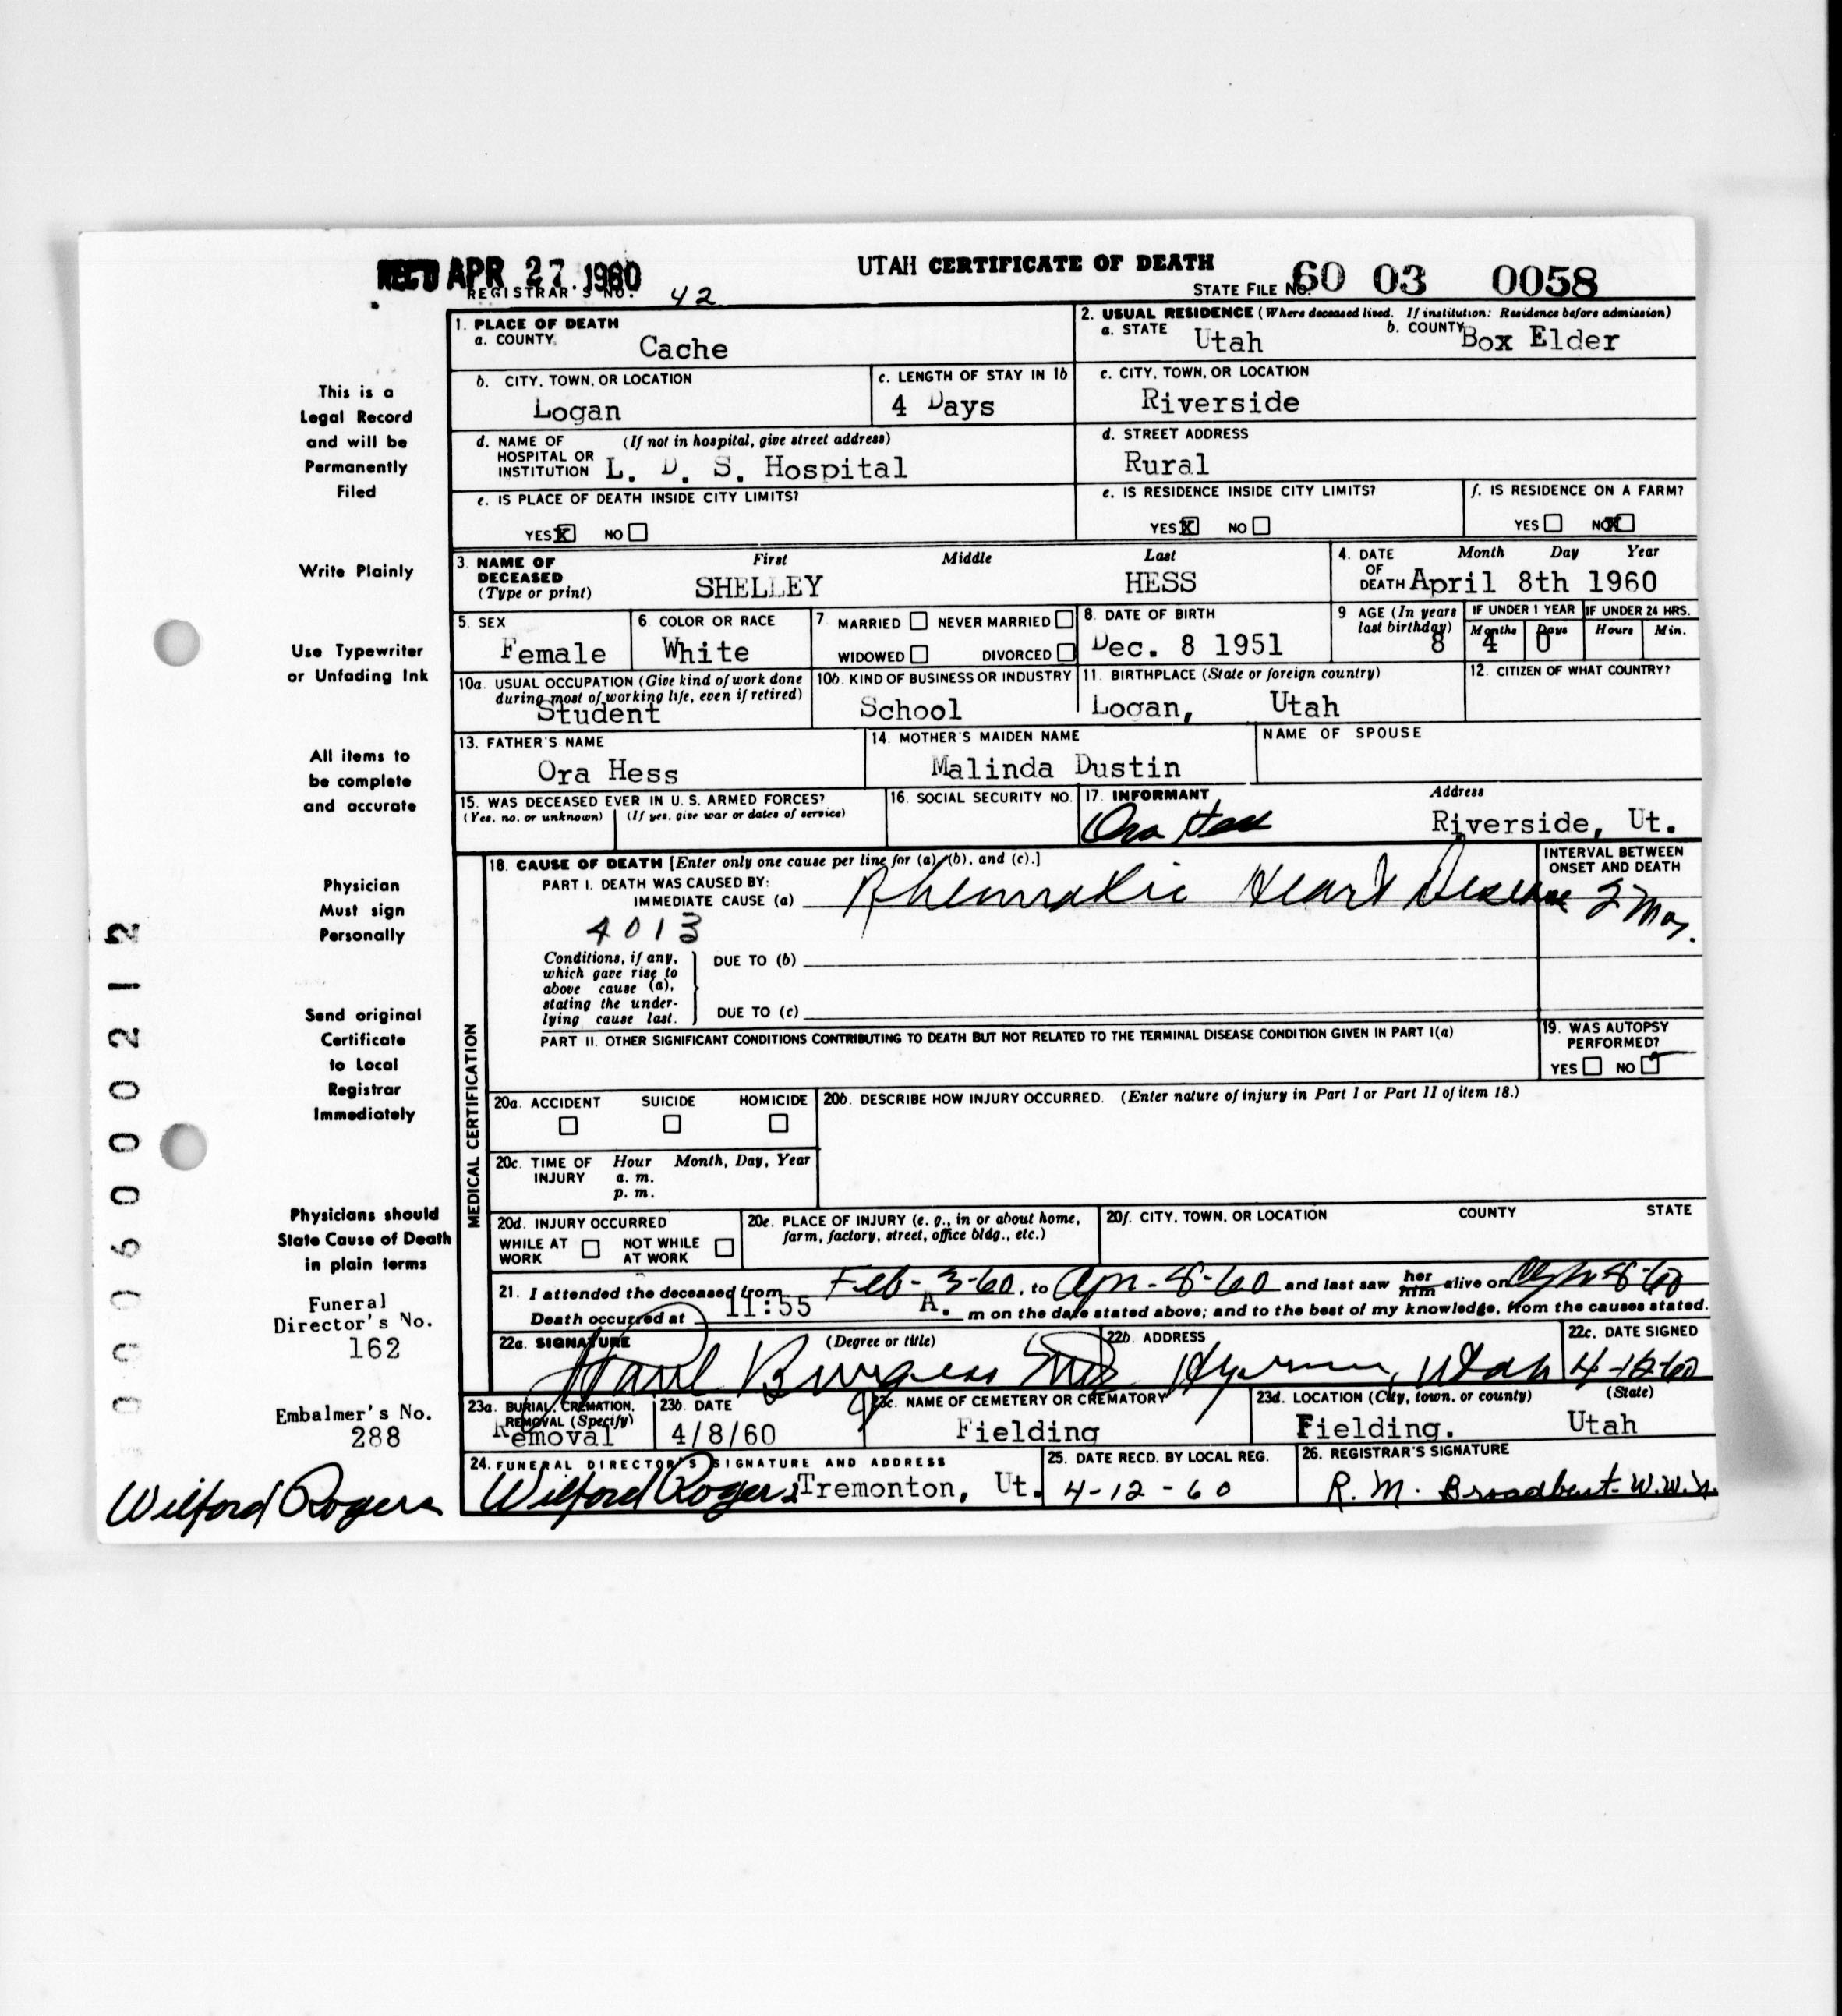 REC'D APR 27 1960
UTAH CERTIFICATE OF DEATH
REGISTRAR'S NO. 42
STATE FILE NO. 60 03 0058
1. PLACE OF DEATH
a. COUNTY Cache
2. USUAL RESIDENCE (Where deceased lived. If institution: Residence before admission)
a. STATE Utah b. COUNTY Box Elder
b. CITY, TOWN, OR LOCATION Logan
c. LENGTH OF STAY IN 1b 4 Days
c. CITY, TOWN, OR LOCATION Riverside
d. NAME OF HOSPITAL OR INSTITUTION (If not in hospital, give street address) L. D. S. Hospital
d. STREET ADDRESS Rural
e. IS PLACE OF DEATH INSIDE CITY LIMITS?
YES X NO
e. IS RESIDENCE INSIDE CITY LIMITS?
YES X NO
f. IS RESIDENCE ON A FARM?
YES NO X
3. NAME OF DECEASED (Type or print) First Middle Last
SHELLEY HESS
4. DATE OF DEATH Month Day Year
April 8th 1960
5. SEX Female
6. COLOR OR RACE White
7. MARRIED NEVER MARRIED
WIDOWED DIVORCED
8. DATE OF BIRTH Dec. 8 1951
9 AGE (In years last birthday) 8
IF UNDER 1 YEAR Months 4 Days 0
IF UNDER 24 HRS. Hours Min.
10a. USUAL OCCUPATION (Give kind of work done during most of working life, even if retired) Student
10b. KIND OF BUSINESS OR INDUSTRY School
11. BIRTHPLACE (State or foreign country) Logan, Utah
12. CITIZEN OF WHAT COUNTRY?
13. FATHER'S NAME Ora Hess
14. MOTHER'S MAIDEN NAME Malinda Dustin
NAME OF SPOUSE
15. WAS DECEASED EVER IN U. S. ARMED FORCES?
(Yes, no, or unknown) (If yes, give war or dates of service)
16. SOCIAL SECURITY NO.
17. INFORMANT Address
Ora Hess Riverside, Ut.
18. CAUSE OF DEATH [Enter only one cause per line for (a) (b), and (c).]
PART I. DEATH WAS CAUSED BY:
IMMEDIATE CAUSE (a) Rheumatic Heart Disease
INTERVAL BETWEEN ONSET AND DEATH
2 Mos.
4013
Conditions, if any, which gave rise to above cause (a), stating the underlying cause last.
DUE TO (b)
DUE TO (c)
PART II. OTHER SIGNIFICANT CONDITIONS CONTRIBUTING TO DEATH BUT NOT RELATED TO THE TERMINAL DISEASE CONDITION GIVEN IN PART I(a)
19. WAS AUTOPSY PERFORMED?
YES NO
20a. ACCIDENT SUICIDE HOMICIDE
20b. DESCRIBE HOW INJURY OCCURRED. (Enter nature of injury in Part I or Part II of item 18.)
20c. TIME OF INJURY Hour Month, Day, Year
a. m.
p. m.
20d. INJURY OCCURRED
WHILE AT WORK NOT WHILE AT WORK
20e. PLACE OF INJURY (e. g., in or about home, farm, factory, street, office bldg., etc.)
20f. CITY, TOWN, OR LOCATION COUNTY STATE
MEDICAL CERTIFICATION
21. I attended the deceased from Feb-3-60, to Apr-8-60 and last saw her him alive on Apr 8-60
Death occurred at 11:55 A. m on the date stated above; and to the best of my knowledge, from the causes stated.
22a. SIGNATURE (Degree or title)
Burgess MD
22b. ADDRESS Hyrum, Utah
22c. DATE SIGNED 4-12-60
23a. BURIAL, CREMATION, REMOVAL (Specify) Removal
23b. DATE 4/8/60
23c. NAME OF CEMETERY OR CREMATORY Fielding
23d. LOCATION (City, town, or county) (State)
Fielding. Utah
24. FUNERAL DIRECTOR'S SIGNATURE AND ADDRESS
Wilford Rogers Tremonton, Ut.
25. DATE RECD. BY LOCAL REG. 4-12-60
26. REGISTRAR'S SIGNATURE
R. M. Broadbent
This is a
Legal Record
and will be
Permanently
Filed
Write Plainly
Use Typewriter
or Unfading Ink
All items to
be complete
and accurate
Physician
Must sign
Personally
Send original
Certificate
to Local
Registrar
Immediately
Physicians should
State Cause of Death
in plain terms
Funeral
Director's No.
162
Embalmer's No.
288
Wilford Rogers